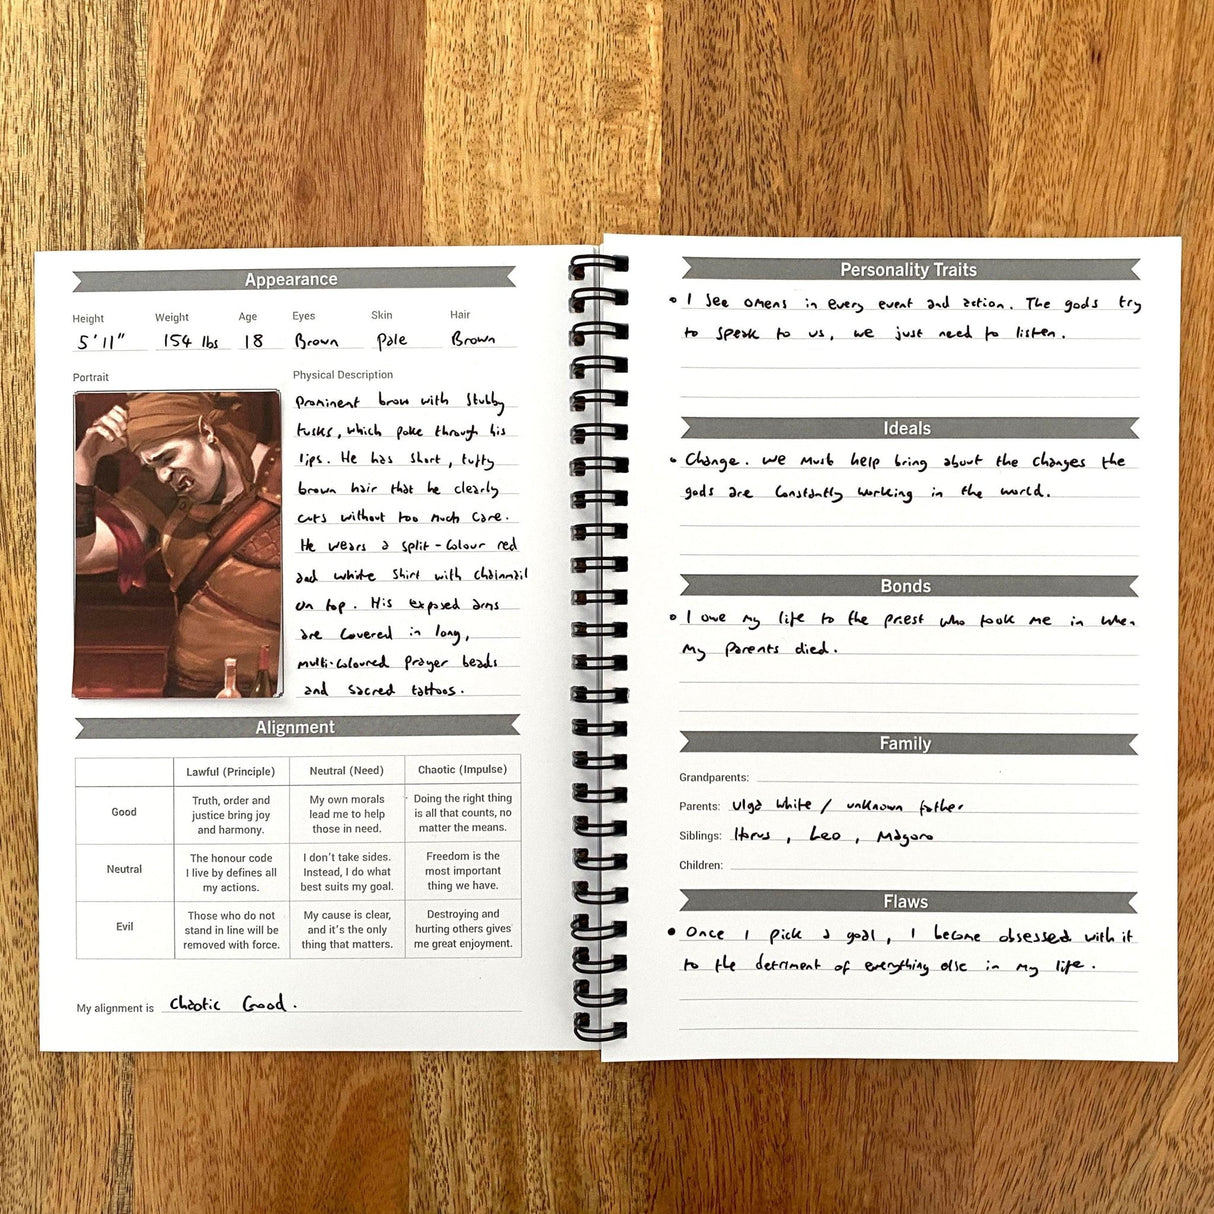 Appearance
Height Weight Age Eyes Skin Hair
5'11" 154 lbs 18 Brown Pale Brown
Portrait
Physical Description
Prominent brow with stubby
tusks, which poke through his
lips. He has short, tufty
brown hair that he clearly
cuts without too much care.
He wears a split-colour red
and white shirt with chainmail
on top. His exposed arms
are covered in long,
multi-coloured prayer beads
and sacred tattoos.
Alignment
Lawful (Principle) Neutral (Need) Chaotic (Impulse)
Good
Truth, order and
justice bring joy
and harmony.
My own morals
lead me to help
those in need.
Doing the right thing
is all that counts, no
matter the means.
Neutral
The honour code
I live by defines all
my actions.
I don't take sides.
Instead, I do what
best suits my goal.
Freedom is the
most important
thing we have.
Evil
Those who do not
stand in line will be
removed with force.
My cause is clear,
and it's the only
thing that matters.
Destroying and
hurting others gives
me great enjoyment.
My alignment is Chaotic Good.
Personality Traits
• I see omens in every event and action. The gods try
to speak to us, we just need to listen.
Ideals
• Change. We must help bring about the changes the
gods are constantly working in the world.
Bonds
• I owe my life to the priest who took me in when
my parents died.
Family
Grandparents:
Parents: Ulga White / unknown father
Siblings: Horus, Leo, Magoro
Children:
Flaws
• Once I pick a goal, I become obsessed with it
to the detriment of everything else in my life.